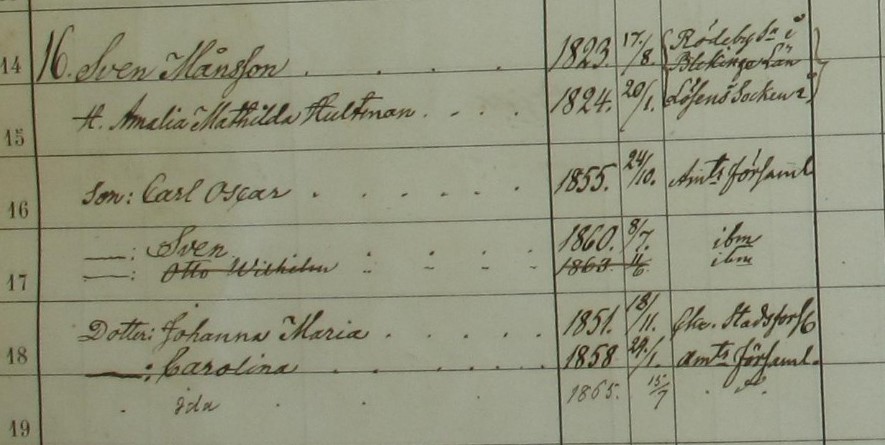 14 16. Sven Månsson . . . . 1823. 17/8. Rödeby Sn i Blekinge Län
15 H. Amalia Mathilda Hultman . . . . 1824. 20/1. Lösens Socken i
16 Son: Carl Oscar . . . . . . 1855. 24/10. Amts Församl
—: Sven . . . . 1860. 8/7. ibm
17 —: Otto Wilhelm 1863. ibm
Dotter: Johanna Maria . . . . . 1851. 18/11. Stadsförs
18 —: Carolina . . . . . 1858 24/1. Amts Församl.
Ida 1865. 15/7
19